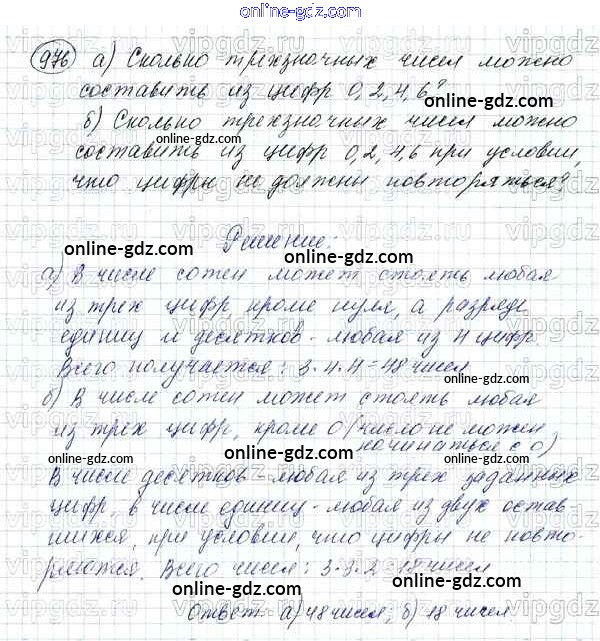 online-gdz.com
976 а) Сколько трехзначных чисел можно
составить из цифр 0, 2, 4, 6?
online-gdz.com
б) Сколько трехзначных чисел можно
составить из цифр 0, 2, 4, 6 при условии,
online-gdz.com
что цифры не должны повторяться?
Решение:
online-gdz.com
online-gdz.com
а) В числе сотен может стоять любая
из трех цифр, кроме нуля, а разряде
единиц и десятков - любая из 4 цифр.
online-gdz.com
Всего получается: 3·4·4=48 чисел
online-gdz.com
б) В числе сотен может стоять любая
из трех цифр, кроме 0 (число не может
начинаться с 0)
online-gdz.com
В числе десятков - любая из трех заданных
цифр, в числе единиц - любая из двух остав
online-gdz.com
шихся, при условии, что цифры не повто-
ряются. Всего чисел: 3·3·2=18 чисел
online-gdz.com
online-gdz.com
Ответ: а) 48 чисел; б) 18 чисел.